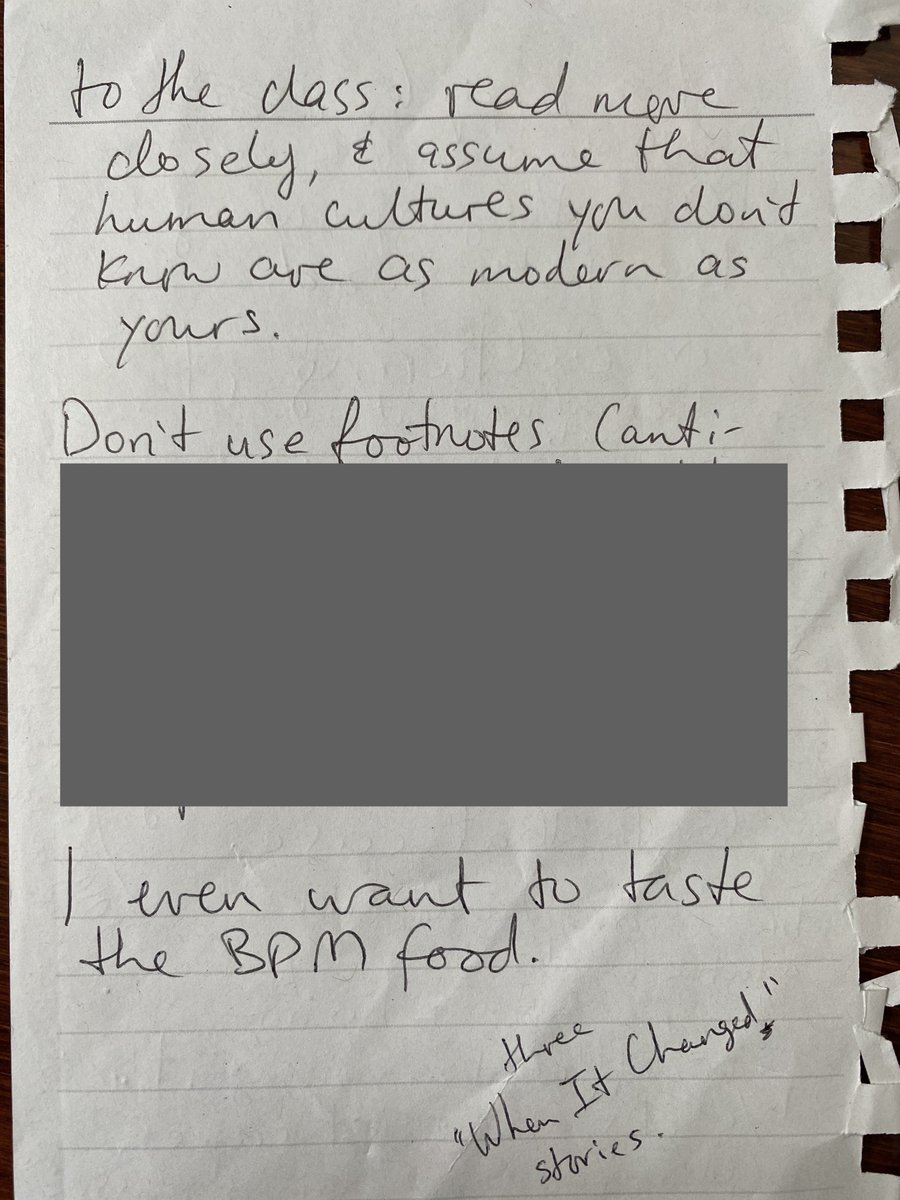 to the class: read more
closely, & assume that
human cultures you don't
know are as modern as
yours.
Don't use footnotes (anti-
I even want to taste
the BPM food.
three
"When It Changed"
stories.